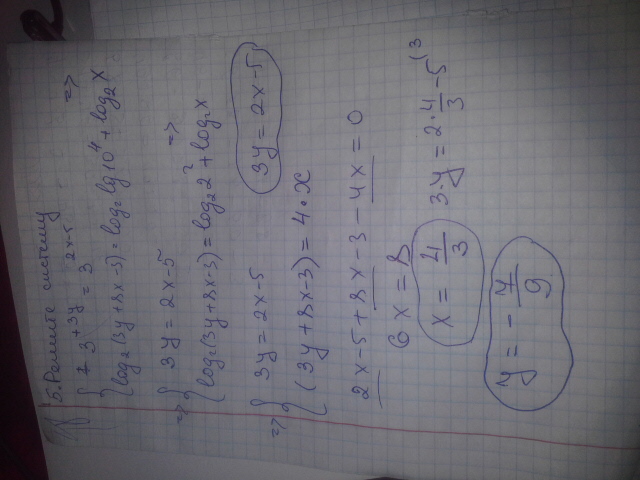 5. Решите систему
{ 3^{+3y} = 3^{2x-5}
{ log₂(3y+8x-3) = log₂ lg10⁴ + log₂x =>
=> { 3y = 2x-5
{ log₂(3y+8x-3) = log₂2² + log₂x =>
=> { 3y = 2x-5
{ (3y+8x-3) = 4·x
3y = 2x-5
2x-5+8x-3-4x=0
6x=8
x = 4/3
3·y = 2·4/3-5 (3
y = -7/9